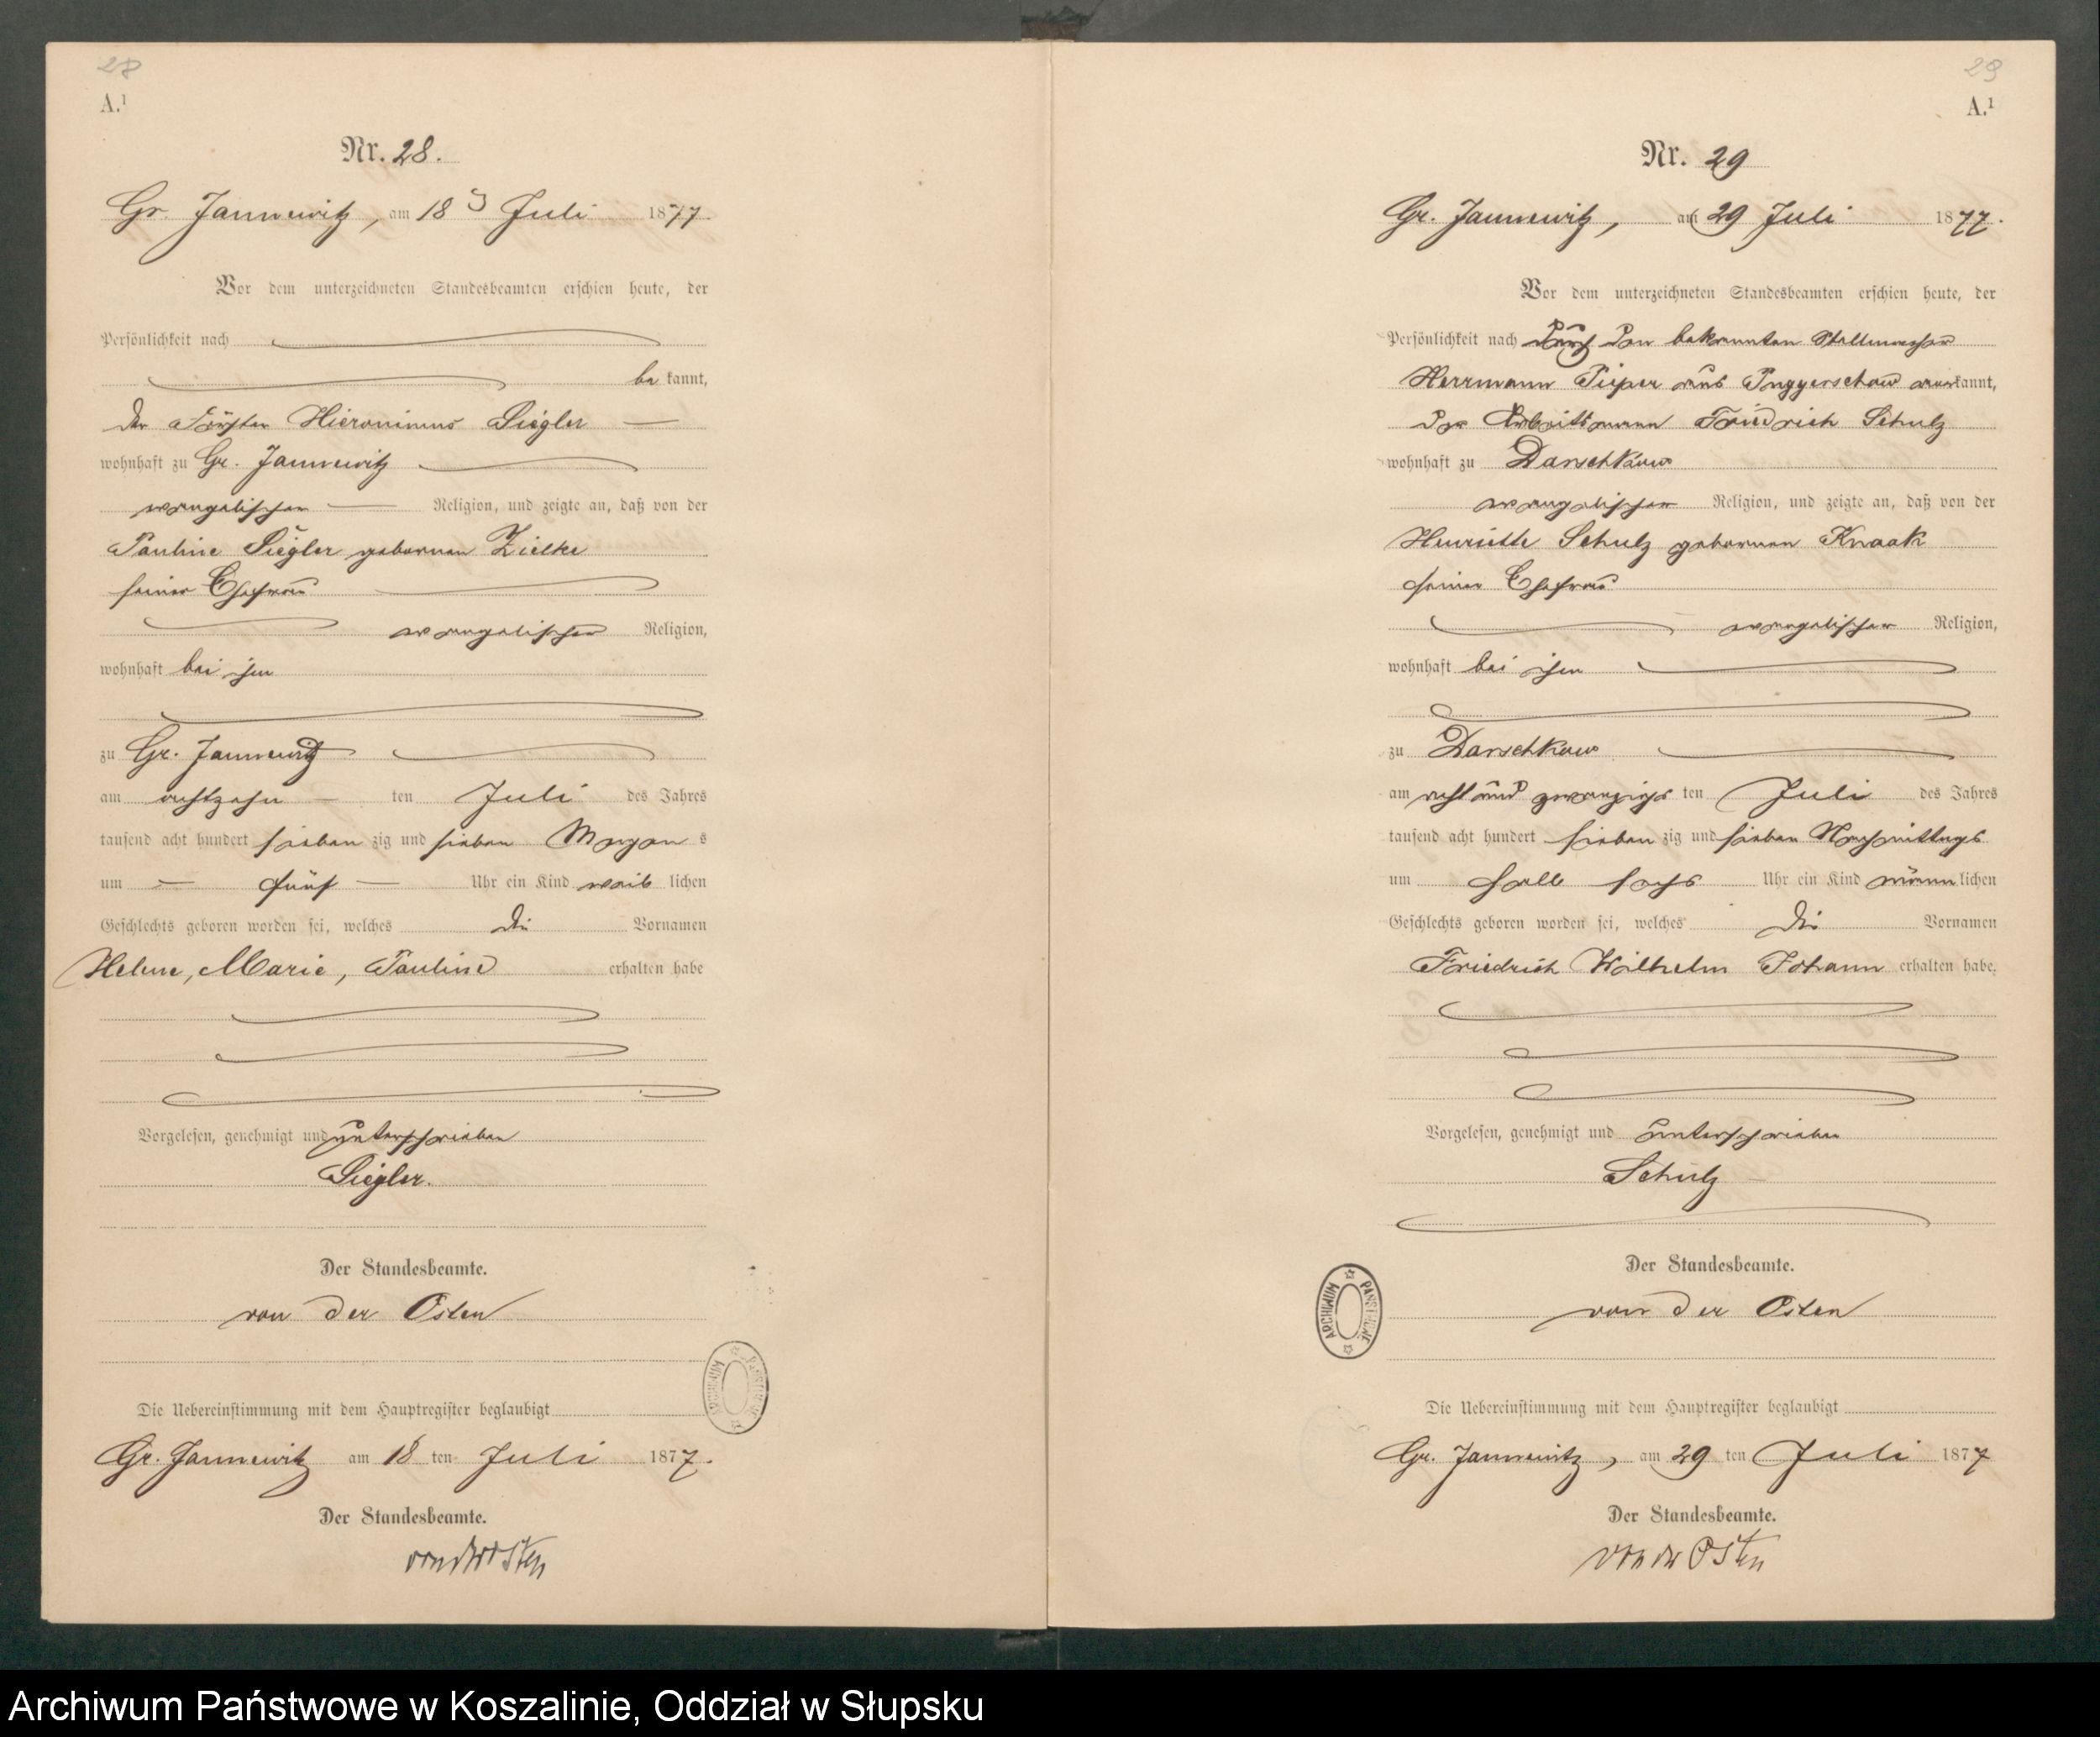 28
A.¹
Nr. 28.
Gr. Jannewitz, am 18 Juli 1877.
Vor dem unterzeichneten Standesbeamten erschien heute, der
Persönlichkeit nach
bekannt,
der Förster Hieronimus Siegler
wohnhaft zu Gr. Jannewitz
evangelischer Religion, und zeigte an, daß von der
Pauline Siegler geborenen Zielke
seiner Ehefrau
evangelischer Religion,
wohnhaft bei ihm
zu Gr. Jannewitz
am achtzehn ten Juli des Jahres
tausend acht hundert sieben zig und sieben Morgens
um fünf Uhr ein Kind weiblichen
Geschlechts geboren worden sei, welches die Vornamen
Helene, Marie, Pauline erhalten habe
Vorgelesen, genehmigt und unterschrieben
Siegler.
Der Standesbeamte.
von der Osten
Die Uebereinstimmung mit dem Hauptregister beglaubigt
Gr. Jannewitz am 18 ten Juli 1877.
Der Standesbeamte.
von der Osten
ARCHIWUM PAŃSTWOWE
29
A.¹
Nr. 29
Gr. Jannewitz, am 29 Juli 1877.
Vor dem unterzeichneten Standesbeamten erschien heute, der
Persönlichkeit nach durch den bekannten Stellmacher
Herrmann Pieper aus Puggerschow anerkannt,
der Arbeitsmann Friedrich Schulz
wohnhaft zu Darschkow
evangelischer Religion, und zeigte an, daß von der
Henriette Schulz geborenen Knaak
seiner Ehefrau
evangelischer Religion,
wohnhaft bei ihm
zu Darschkow
am acht und zwanzigs ten Juli des Jahres
tausend acht hundert sieben zig und sieben Nachmittags
um halb sechs Uhr ein Kind männlichen
Geschlechts geboren worden sei, welches die Vornamen
Friedrich Wilhelm Johann erhalten habe.
Vorgelesen, genehmigt und unterschrieben
Schulz
Der Standesbeamte.
von der Osten
ARCHIWUM PAŃSTWOWE
Die Uebereinstimmung mit dem Hauptregister beglaubigt
Gr. Jannewitz, am 29 ten Juli 1877
Der Standesbeamte.
von der Osten
Archiwum Państwowe w Koszalinie, Oddział w Słupsku